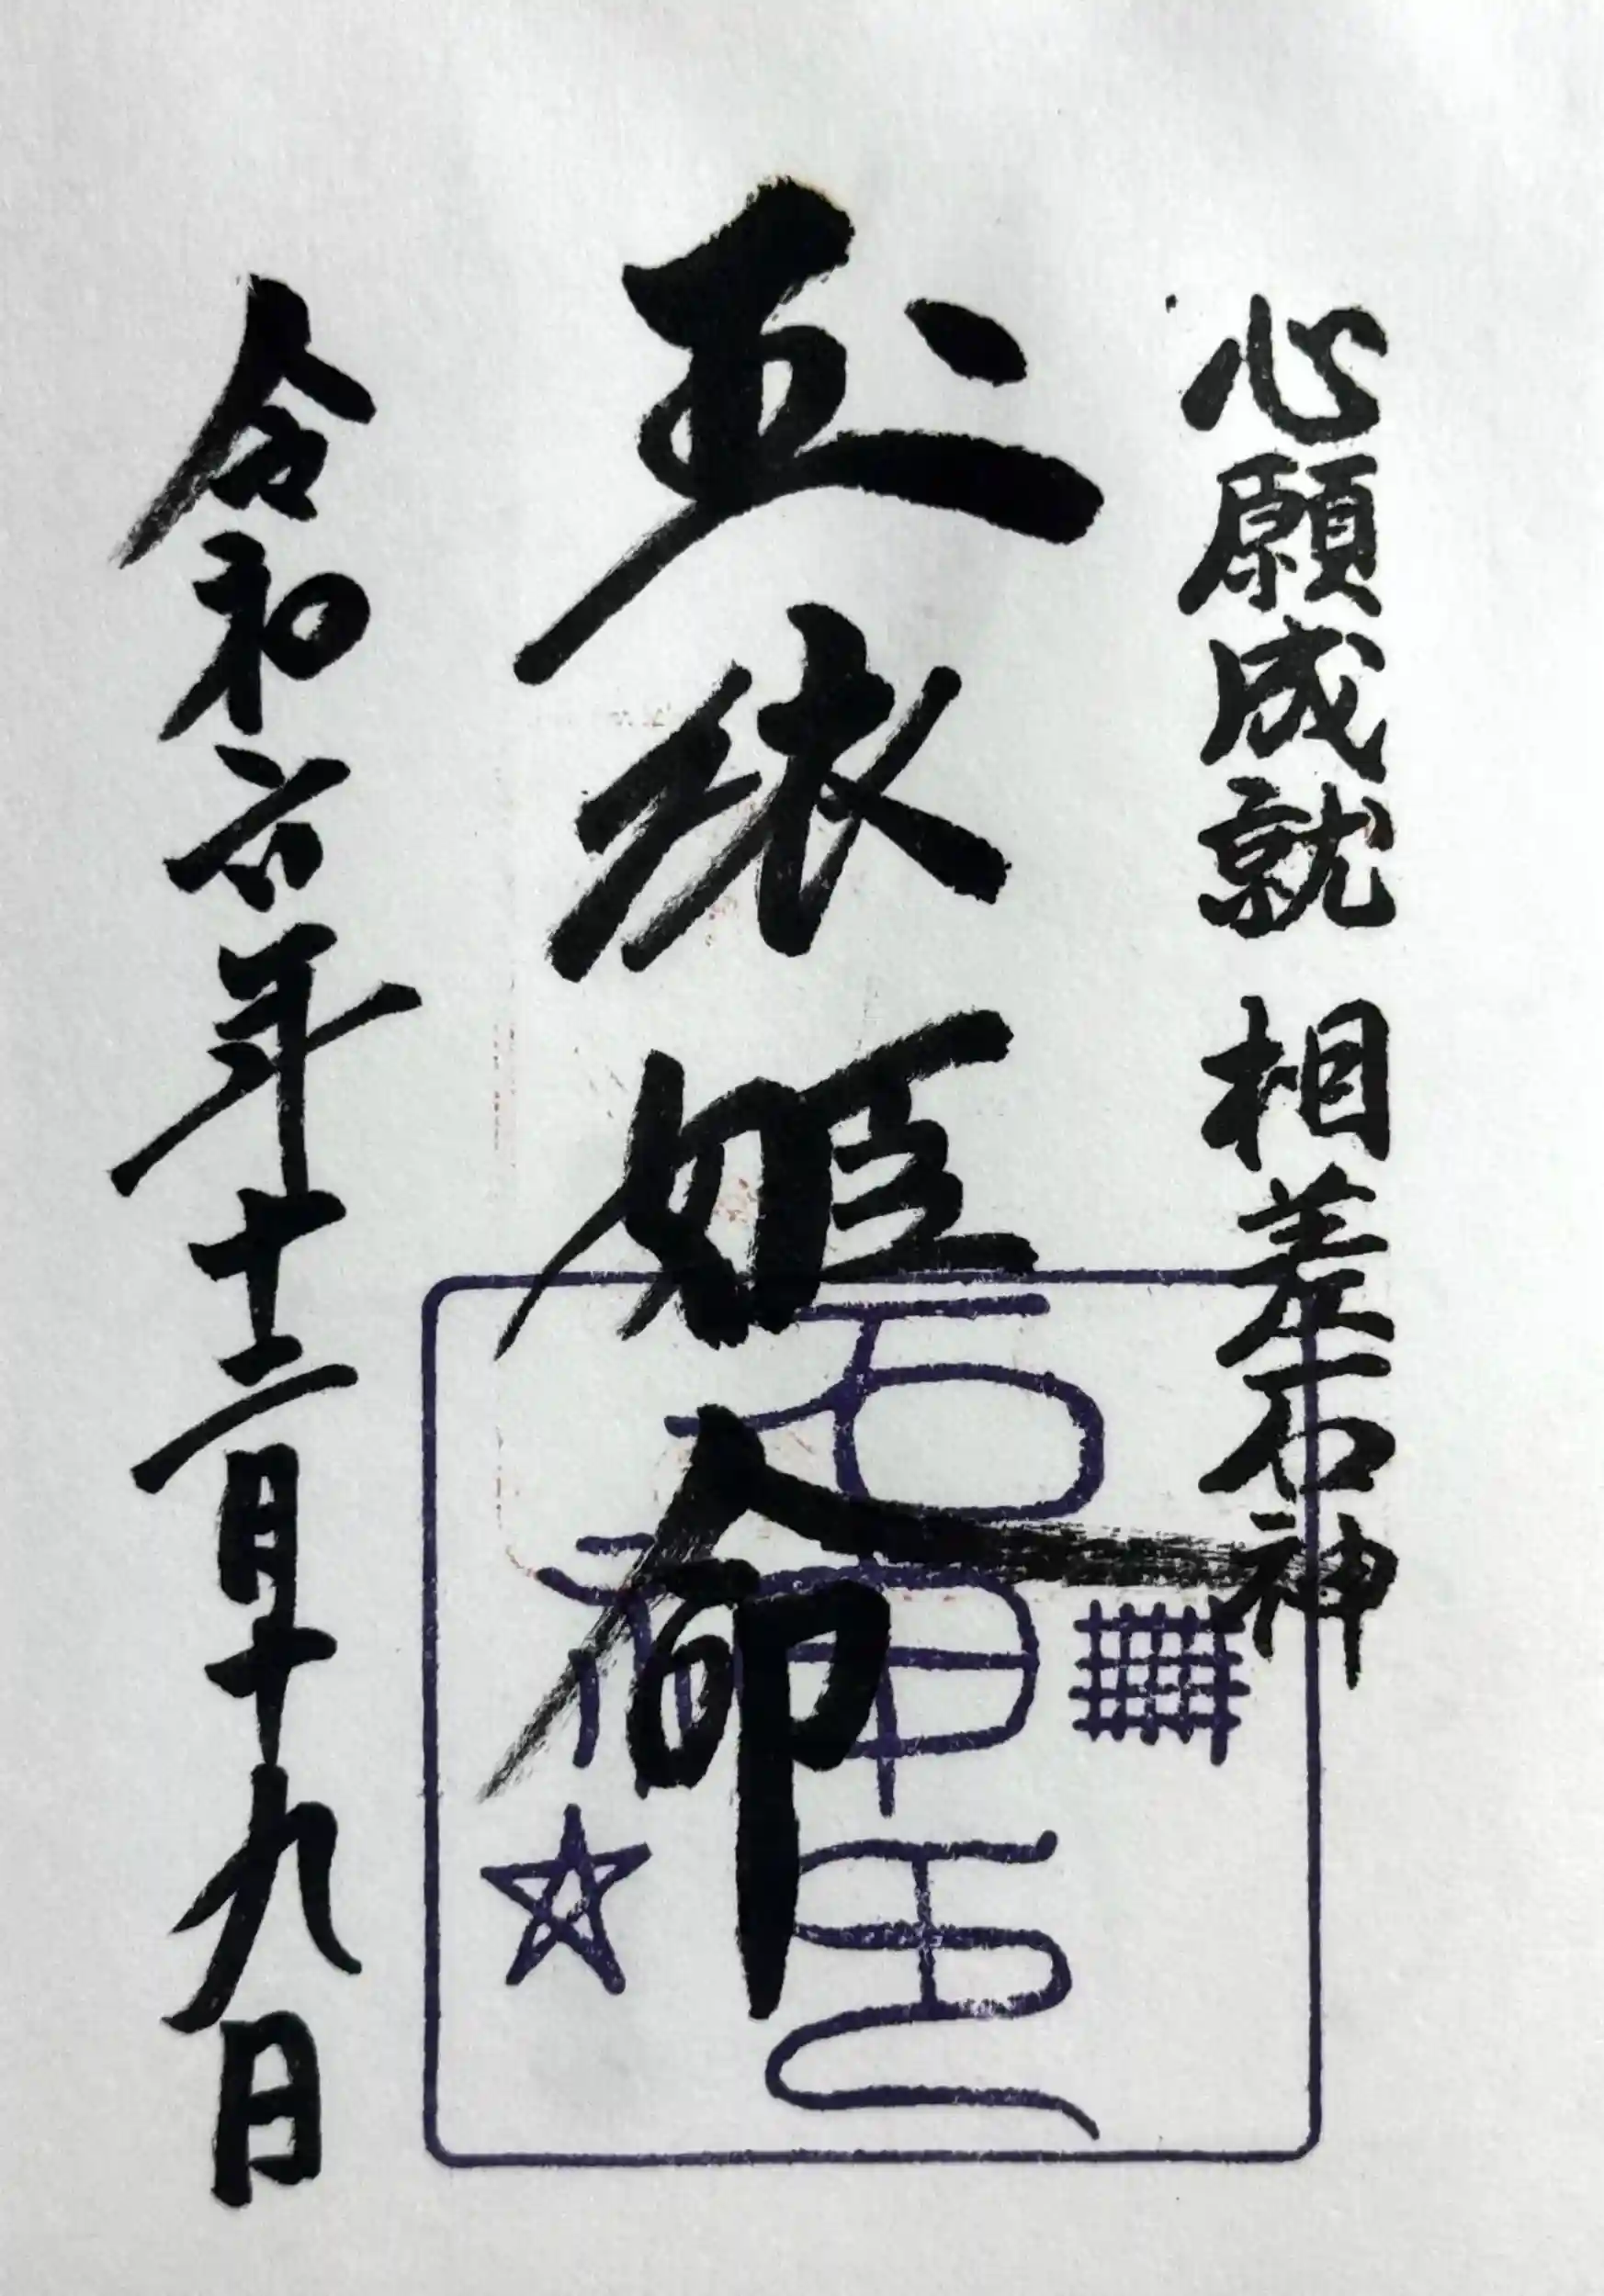 心願成就 相差石神
玉依姫命
石神
令和六年十二月十九日